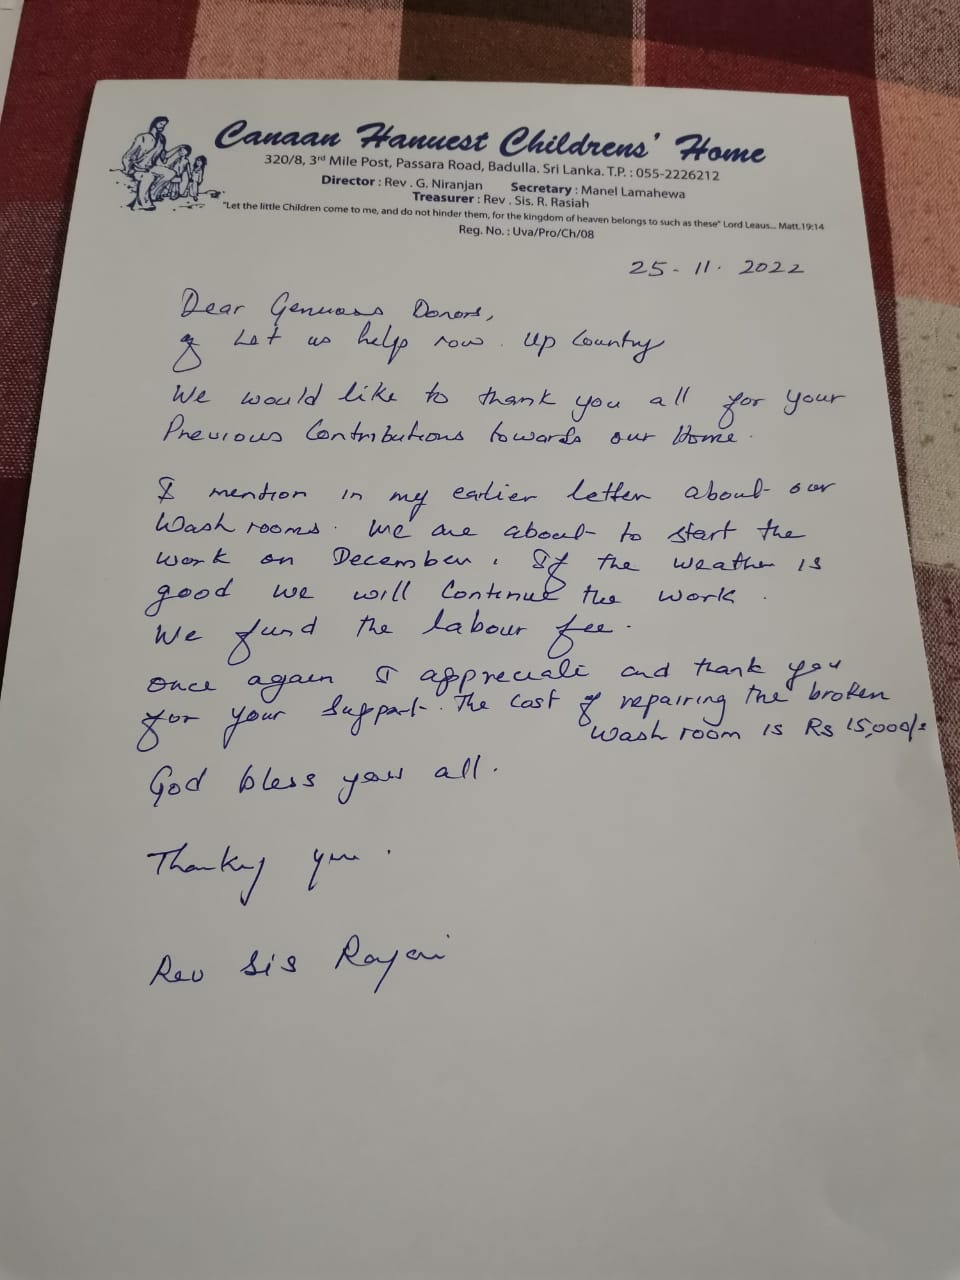 Canaan Haruest Childrens' Home
320/8, 3rd Mile Post, Passara Road, Badulla. Sri Lanka. T.P. : 055-2226212
Director : Rev . G. Niranjan Secretary : Manel Lamahewa
Treasurer : Rev . Sis. R. Rasiah
"Let the little Children come to me, and do not hinder them, for the kingdom of heaven belongs to such as these" Lord Leaus... Matt.19:14
Reg. No. : Uva/Pro/Ch/08
25-11. 2022
Dear Donors,
of Let us help now. Up Country
We would like to thank you all for your
Previous Contributions towards our Home.
I mention in my earlier letter about our
Wash rooms. We are about to start the
work on December. If the weather is
good we will Continue the work.
We fund the labour fee.
once again I appreciate and thank you
for your Support. The cost of repairing the broken
wash room is Rs 15,000/=
God bless you all.
Thanking you.
Rev Sis